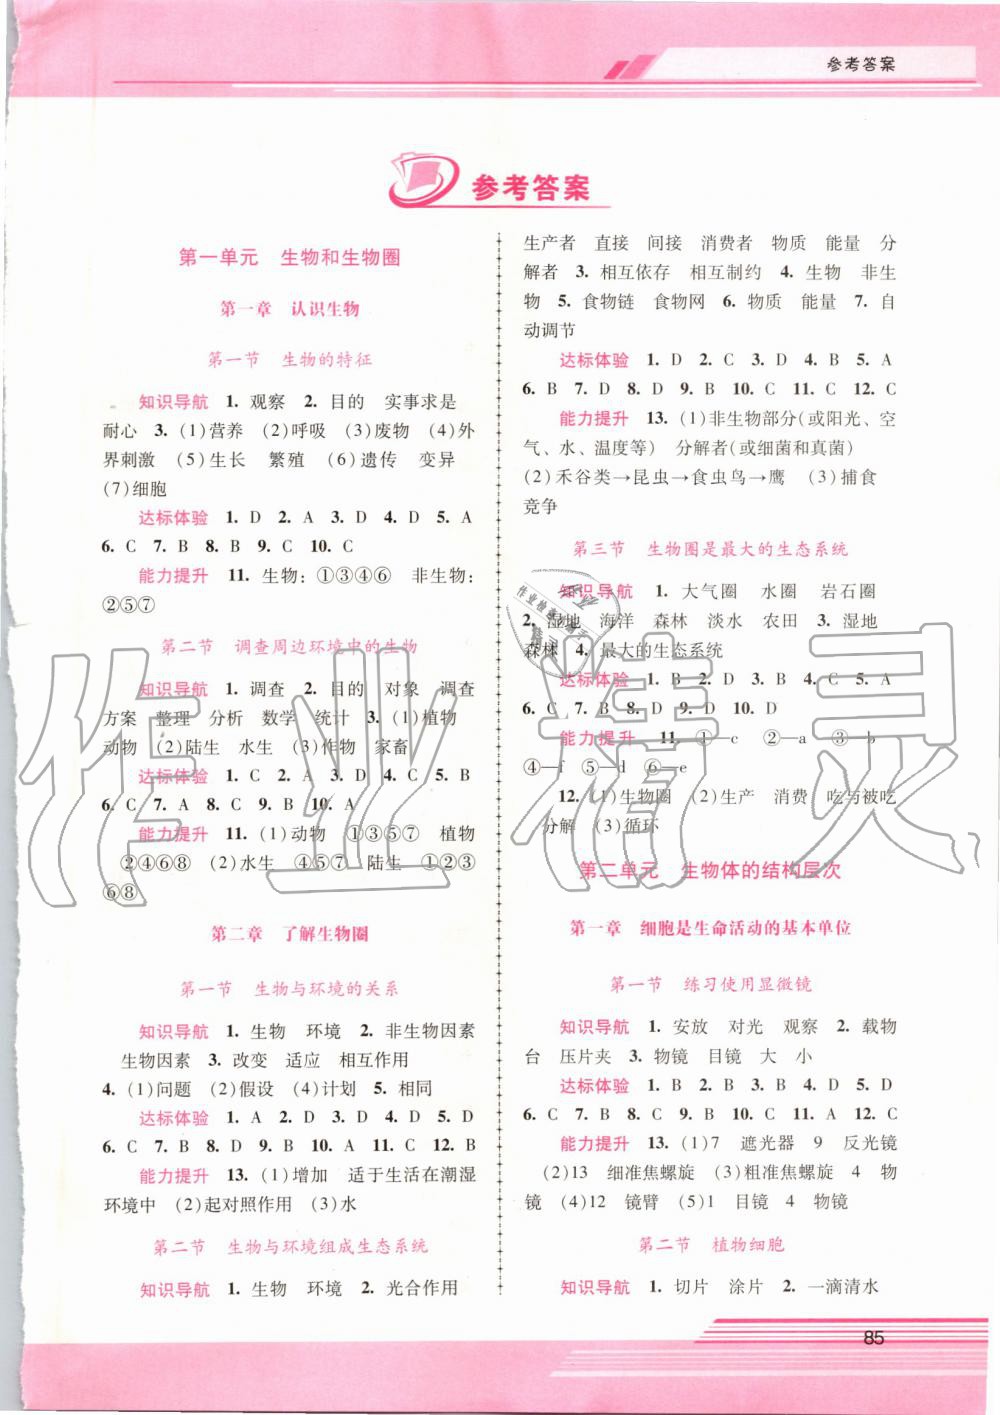 参考答案
参考答案
第一单元 生物和生物圈
第一章 认识生物
第一节 生物的特征
知识导航 1. 观察 2. 目的 实事求是
耐心 3. (1)营养 (2)呼吸 (3)废物 (4)外
界刺激 (5)生长 繁殖 (6)遗传 变异
(7)细胞
达标体验 1. D 2. A 3. D 4. D 5. A
6. C 7. B 8. B 9. C 10. C
能力提升 11. 生物：①③④⑥ 非生物：
②⑤⑦
第二节 调查周边环境中的生物
知识导航 1. 调查 2. 目的 对象 调查
方案 整理 分析 数学 统计 3. (1)植物
动物 (2)陆生 水生 (3)作物 家畜
达标体验 1. C 2. A 3. C 4. C 5. B
6. C 7. A 8. C 9. B 10. A
能力提升 11. (1)动物 ①③⑤⑦ 植物
②④⑥⑧ (2)水生 ④⑤⑦ 陆生 ①②③
⑥⑧
第二章 了解生物圈
第一节 生物与环境的关系
知识导航 1. 生物 环境 2. 非生物因素
生物因素 3. 改变 适应 相互作用
4. (1)问题 (2)假设 (4)计划 5. 相同
达标体验 1. A 2. D 3. D 4. D 5. D
6. C 7. B 8. D 9. B 10. A 11. C 12. B
能力提升 13. (1)增加 适于生活在潮湿
环境中 (2)起对照作用 (3)水
第二节 生物与环境组成生态系统
知识导航 1. 生物 环境 2. 光合作用
生产者 直接 间接 消费者 物质 能量 分
解者 3. 相互依存 相互制约 4. 生物 非生
物 5. 食物链 食物网 6. 物质 能量 7. 自
动调节
达标体验 1. D 2. C 3. D 4. B 5. A
6. B 7. D 8. D 9. B 10. C 11. C 12. C
能力提升 13. (1)非生物部分(或阳光、空
气、水、温度等) 分解者(或细菌和真菌)
(2)禾谷类→昆虫→食虫鸟→鹰 (3)捕食
竞争
第三节 生物圈是最大的生态系统
知识导航 1. 大气圈 水圈 岩石圈
2. 湿地 海洋 森林 淡水 农田 3. 湿地
森林 4. 最大的生态系统
达标体验 1. B 2. D 3. B 4. C 5. A
6. C 7. B 8. D 9. D 10. D
能力提升 11. ①—c ②—a ③—b
④—f ⑤—d ⑥—e
12. (1)生物圈 (2)生产 消费 吃与被吃
分解 (3)循环
第二单元 生物体的结构层次
第一章 细胞是生命活动的基本单位
第一节 练习使用显微镜
知识导航 1. 安放 对光 观察 2. 载物
台 压片夹 3. 物镜 目镜 大 小
达标体验 1. B 2. B 3. D 4. B 5. D
6. C 7. B 8. C 9. B 10. C 11. A 12. C
能力提升 13. (1)7 遮光器 9 反光镜
(2)13 细准焦螺旋 (3)粗准焦螺旋 4 物
镜 (4)12 镜臂 (5)1 目镜 4 物镜
第二节 植物细胞
知识导航 1. 切片 涂片 2. 一滴清水
85
作业精灵